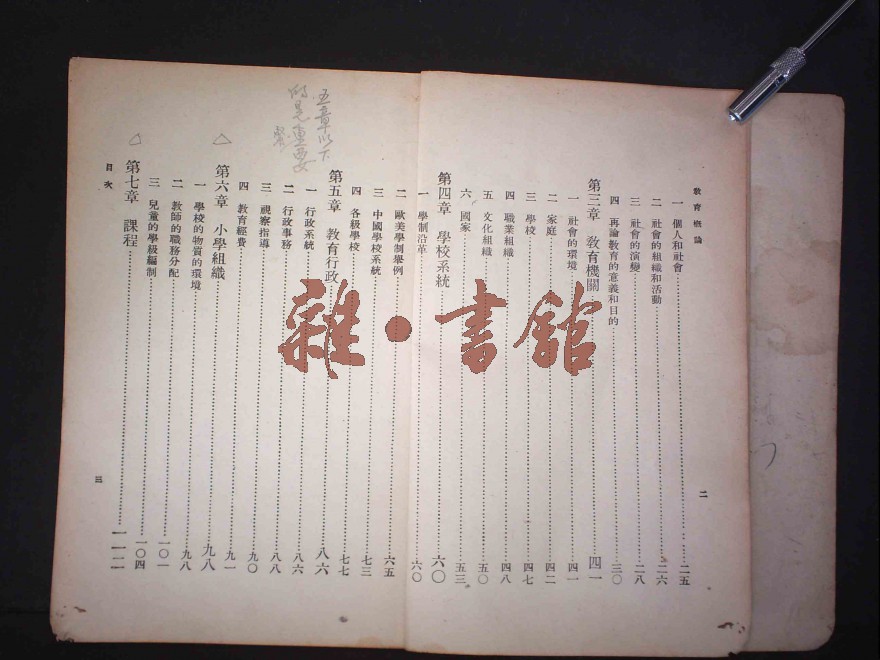 教育概論
一 個人和社會 二五
二 社會的組織和活動 二六
三 社會的演變 二八
四 再論教育的意義和目的 三〇
第三章 教育機關 四一
一 社會的環境 四一
二 家庭 四二
三 學校 四七
四 職業組織 四八
五 文化組織 五〇
六 國家 五三
第四章 學校系統 六〇
一 學制沿革 六〇
二 歐美學制舉例 六五
三 中國學校系統 七三
四 各級學校 七七
第五章 教育行政 八六
一 行政系統 八六
二 行政事務 八八
三 視察指導 九〇
四 教育經費 九一
第六章 小學組織 九八
一 學校的物質的環境 九八
二 教師的職務分配 一〇一
三 兒童的學級編制 一〇四
第七章 課程 一一二
目次
二
三
五章以下
的是重要
雜•書館